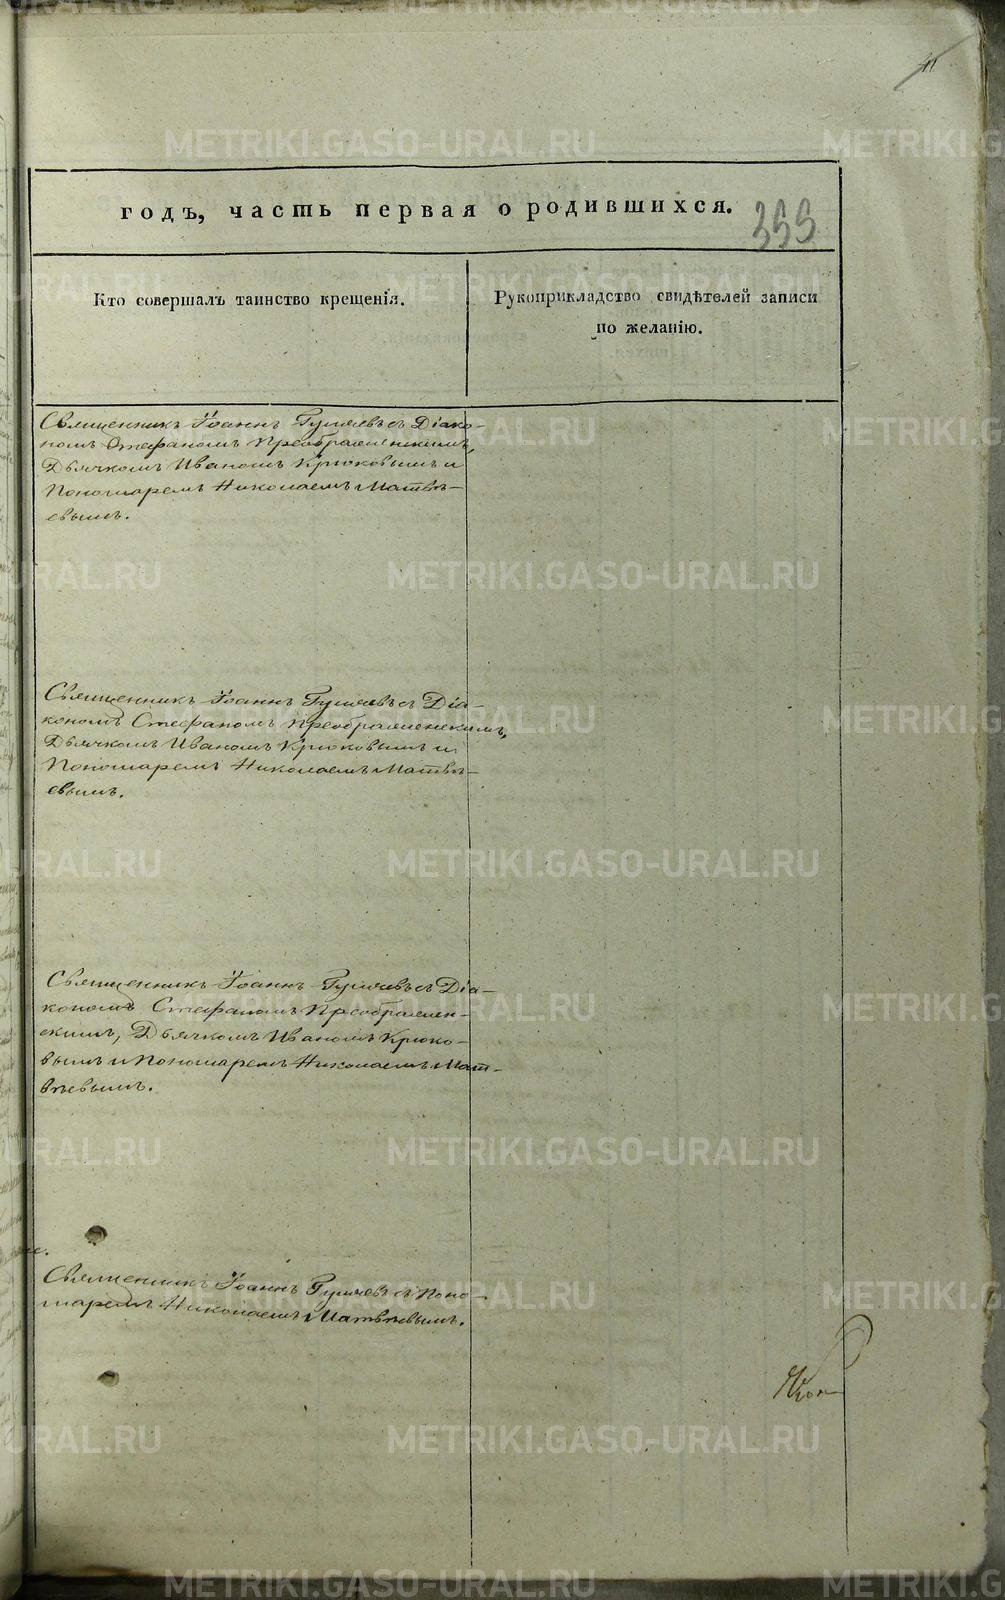 годъ, часть первая о родившихся.
Кто совершалъ таинство крещенія.
Рукоприкладство свидѣтелей записи
по желанію.
Священникъ Іоаннъ Гуляевъ съ Діако-
номъ Стефаномъ Преображенскимъ,
Дьячкомъ Иваномъ Крюковымъ и
Пономаремъ Николаемъ Матвѣ-
евымъ.
Священникъ Іоаннъ Гуляевъ съ Діа-
кономъ Стефаномъ Преображенскимъ,
Дьячкомъ Иваномъ Крюковымъ и
Пономаремъ Николаемъ Матвѣ-
евымъ.
Священникъ Іоаннъ Гуляевъ съ Діа-
кономъ Стефаномъ Преображен-
скимъ, Дьячкомъ Иваномъ Крюко-
вымъ и Пономаремъ Николаемъ Мат-
вѣевымъ.
Священникъ Іоаннъ Гуляевъ съ Поно-
маремъ Николаемъ Матвѣевымъ.
METRIKI.GASO-URAL.RU